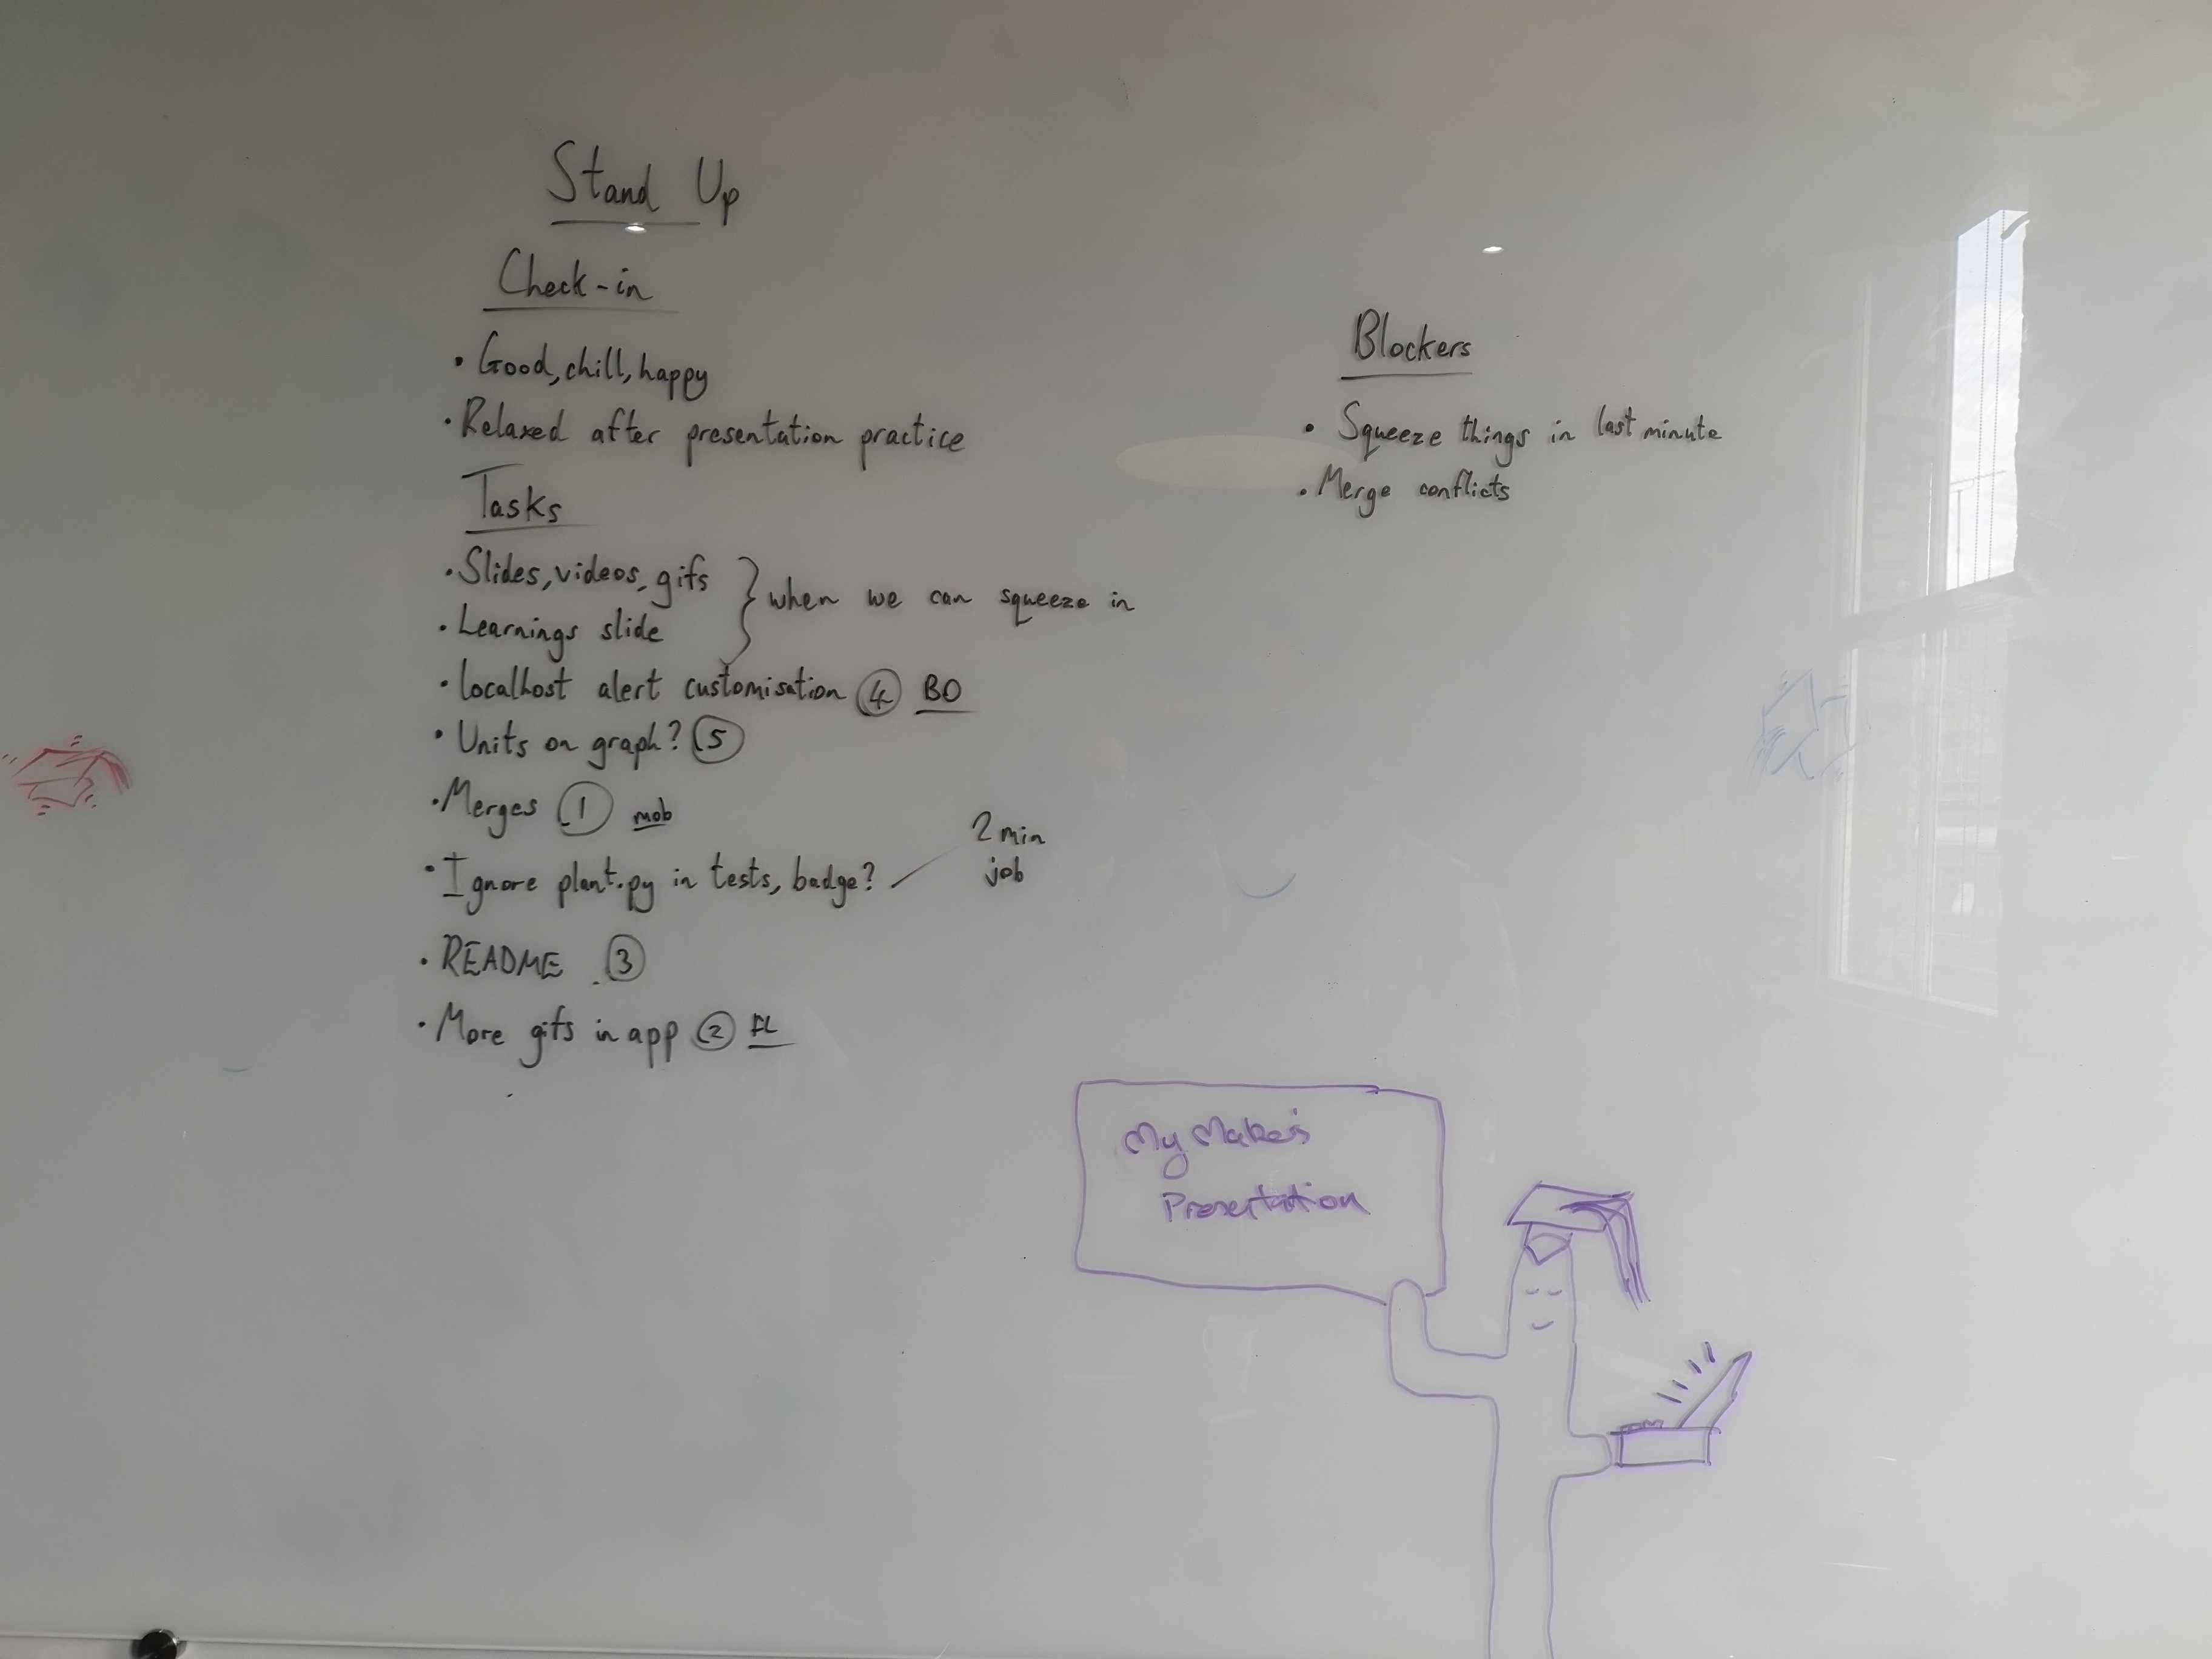 Stand Up
Check-in
• Good, chill, happy
• Relaxed after presentation practice
Tasks
• Slides, videos, gifs
• Learnings slide
} when we can squeeze in
• localhost alert customisation 4 BO
• Units on graph? 5
• Merges 1 mob
• Ignore plant.py in tests, badge?
2 min
job
• README 3
• More gifs in app 2 FL
Blockers
• Squeeze things in last minute
• Merge conflicts
My Makers
Presentation